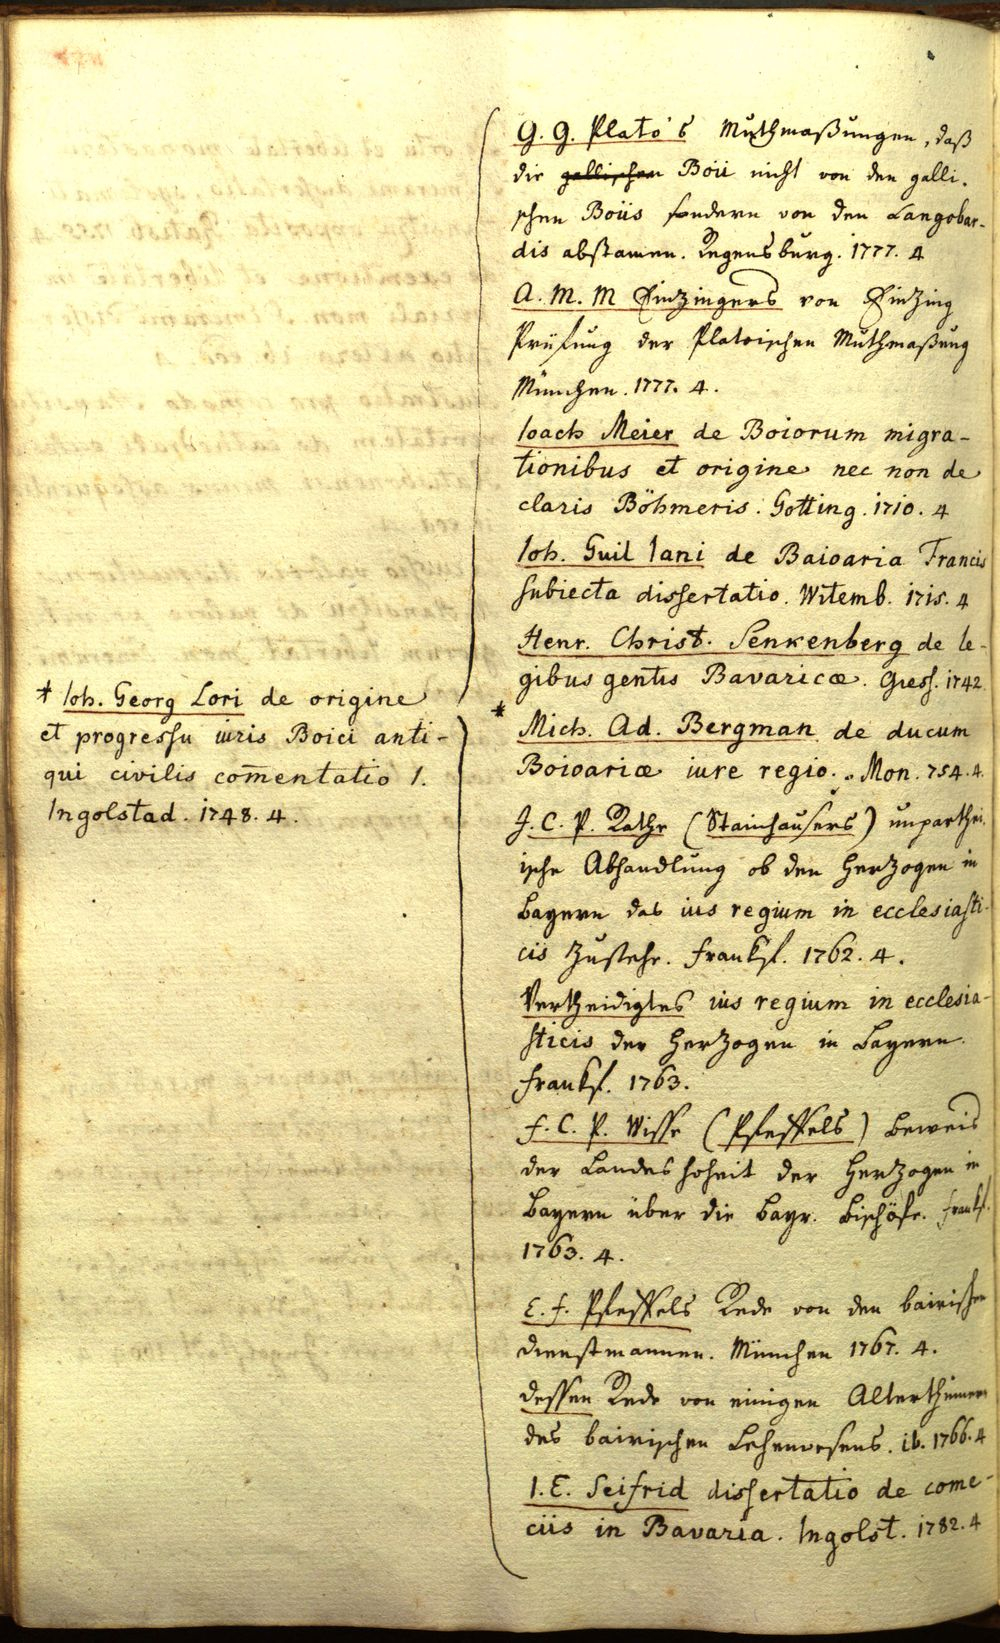 G. G. Plato's Muthmaßungen, daß
die gallischen Boii nicht von den galli-
schen Boiis sondern von den Langobar-
dis abstamen. Regensburg. 1777. 4
A. M. M Einzingers von Einzing
Prüfung der Platoischen Muthmaßung
München. 1777. 4.
Ioach Meier de Boiorum migra-
tionibus et origine nec non de
claris Böhmeris. Gotting. 1710. 4
Ioh. Guil Iani de Baioaria Francis
subiecta dissertatio. Witemb. 1715. 4
Henr. Christ. Senkenberg de le-
gibus gentis Bavaricæ. Giess. 1742
* Ioh. Georg Lori de origine
et progressu iuris Boici anti-
qui civilis com̄entatio I.
Ingolstad. 1748. 4.
*
Mich. Ad. Bergman de ducum
Boioariæ iure regio. Mon. 754. 4.
J. C. P. Rathe (Stainhausers) unparthei-
ische Abhandlung ob den Herzogen in
Bayern das ius regium in ecclesiasti-
cis zustehe. Frankf. 1762. 4.
Vertheidigtes ius regium in ecclesia-
sticis der Herzogen in Bayern.
Frankf. 1763.
F. C. P. Wisse (Pfeffels) Beweis
der Landeshoheit der Herzogen in
Bayern über die bayr. Bischöfe. Frankf.
1763. 4.
C. F. Pfeffels Rede von den bairischen
Dienstmannen. München 1767. 4.
dessen Rede von einigen Alterthümern
des bairischen Lehenwesens. ib. 1766. 4
I. E. Seifrid dissertatio de come-
ciis in Bavaria. Ingolst. 1782. 4